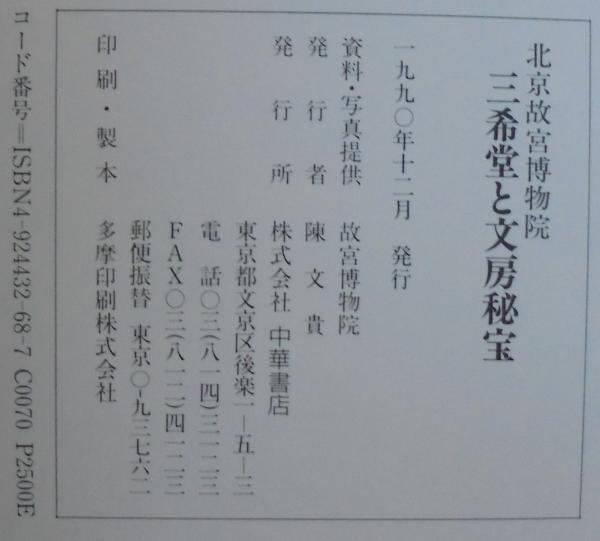 北京故宮博物院
三希堂と文房秘宝
一九九〇年十二月 発行
資料・写真提供 故宮博物院
発行者 陳文貴
発行所 株式会社 中華書店
東京都文京区後楽一―五―三
電話〇三(八一四)三一二三
FAX〇三(八一二)四一二三
郵便振替 東京〇-九三七六二
印刷・製本 多摩印刷株式会社
コード番号=ISBN4-924432-68-7 C0070 P2500E